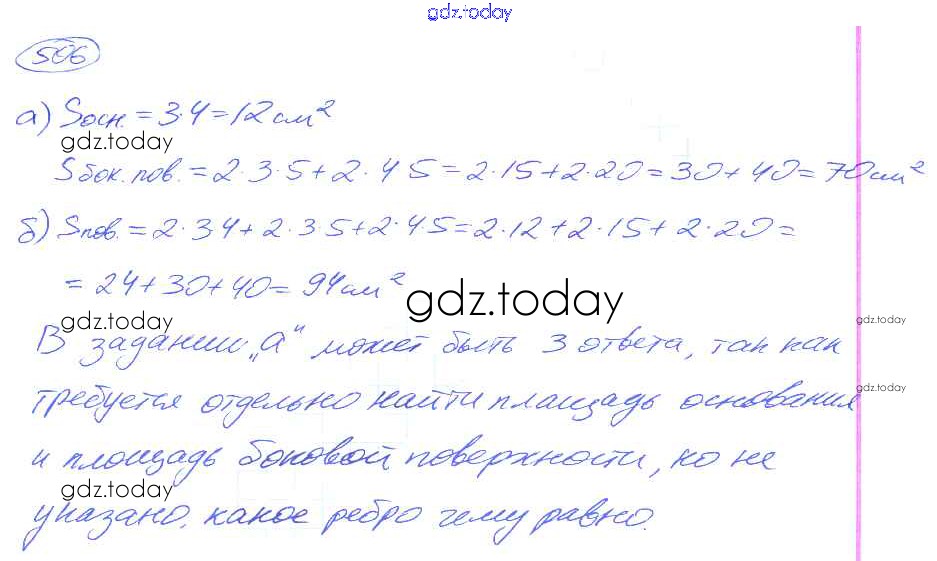 gdz.today
506
а) Sосн. = 3·4 = 12 см²
gdz.today
Sбок. пов. = 2·3·5 + 2·4 5 = 2·15 + 2·20 = 30 + 40 = 70 см²
б) Sпов. = 2·3 4 + 2·3·5 + 2·4 5 = 2·12 + 2·15 + 2·20 =
= 24 + 30 + 40 = 94 см²
gdz.today
gdz.today
gdz.today
В задании „а“ может быть 3 ответа, так как
gdz.today
требуется отдельно найти площадь основания
и площадь боковой поверхности, но не
gdz.today
указано, какое ребро чему равно.